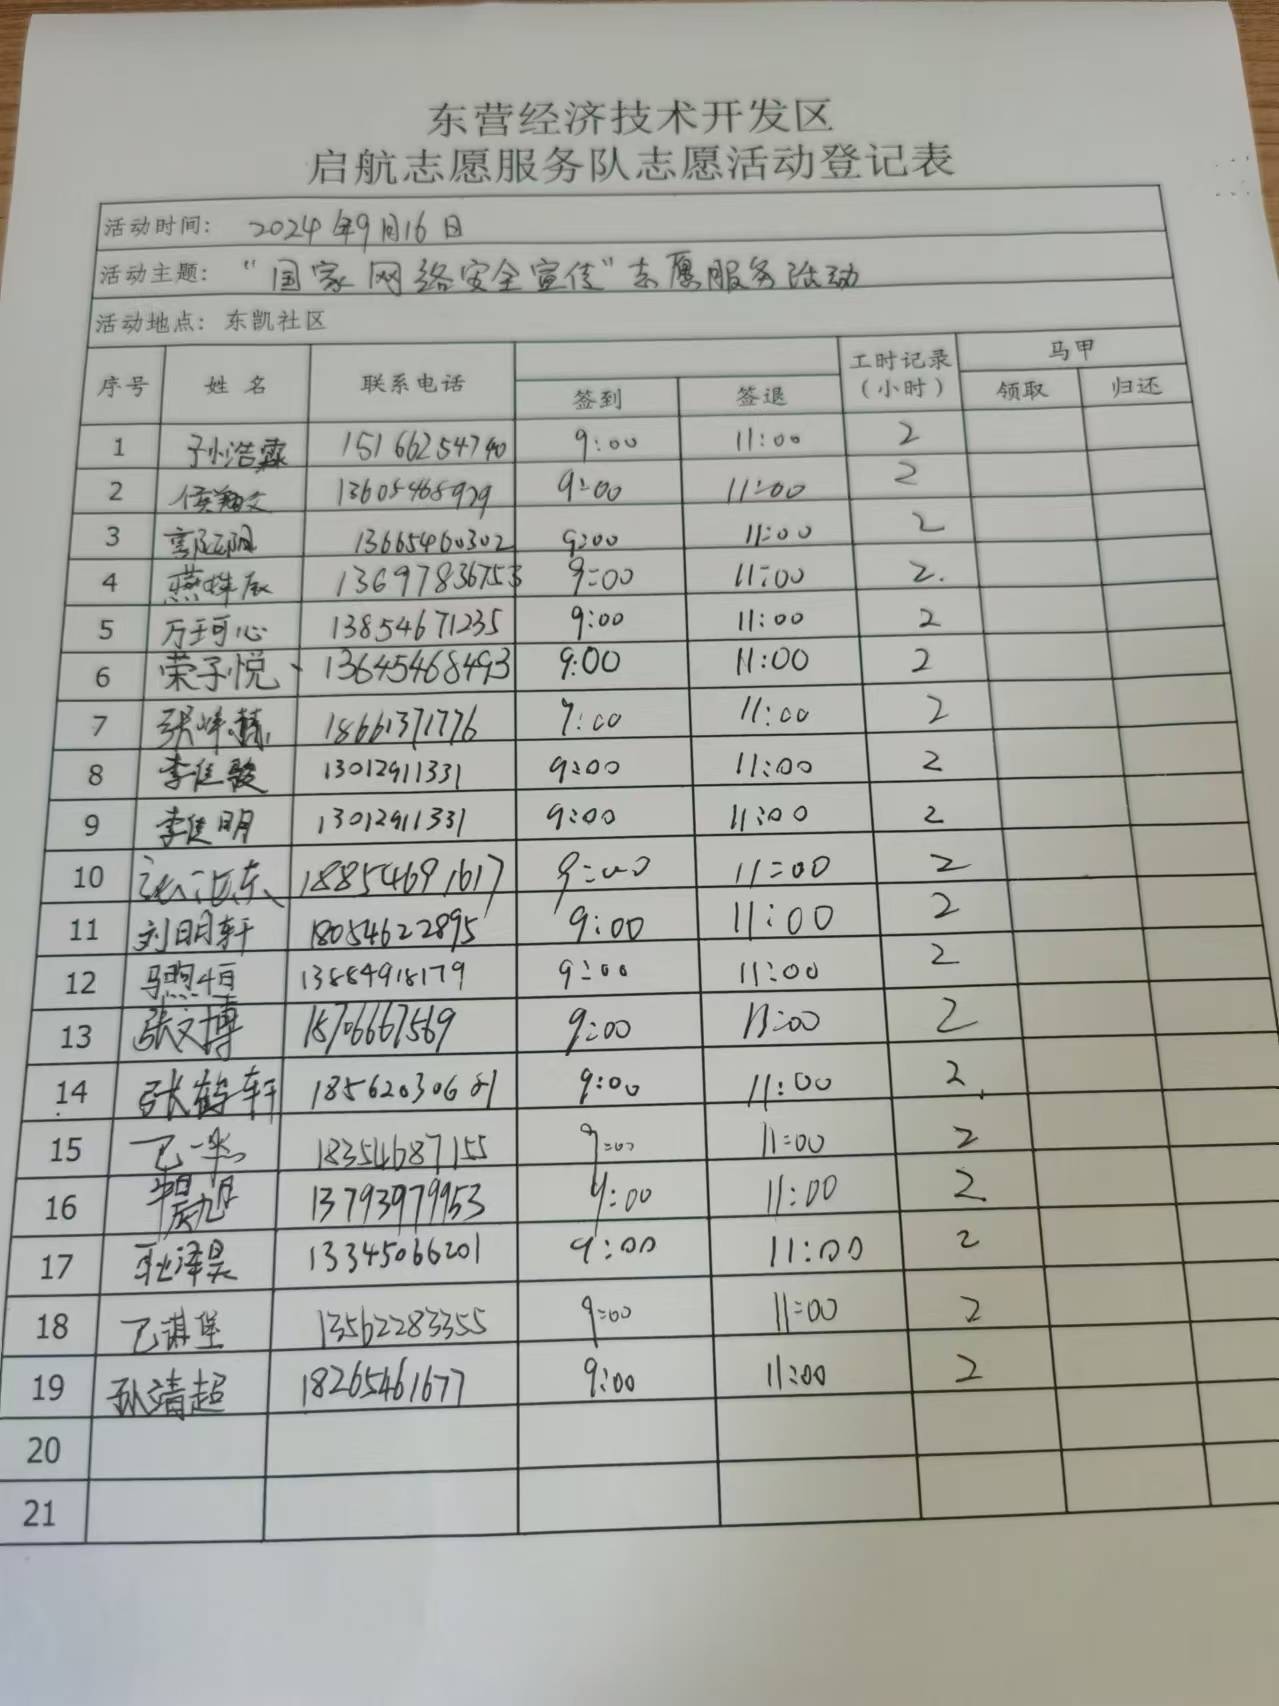 东营经济技术开发区
启航志愿服务队志愿活动登记表
活动时间: 2024年9月16日
活动主题: “国家网络安全宣传”志愿服务活动
活动地点: 东凯社区
序号 姓名 联系电话 签到 签退 工时记录(小时) 马甲 领取 归还
1 孙浩霖 15166254740 9:00 11:00 2
2 侯翔文 13605468979 9:00 11:00 2
3 13665460302 9:00 11:00 2
4 13697836753 9:00 11:00 2.
5 万珂心 13854671235 9:00 11:00 2
6 荣子悦 13645468493 9:00 11:00 2
7 18661371776 9:00 11:00 2
8 李佳骏 13012911331 9:00 11:00 2
9 李佳明 13012911331 9:00 11:00 2
10 18854691617 9:00 11:00 2
11 刘明轩 18054622895 9:00 11:00 2
12 马煦恒 13884918179 9:00 11:00 2
13 张文博 18706667569 9:00 11:00 2
14 张鹤轩 9:00 11:00 2
15 18354687155 9:00 11:00 2
16 13793979953 9:00 11:00 2
17 耿泽昊 13345066201 9:00 11:00 2
18 13562283355 9:00 11:00 2
19 孙清超 18265461677 9:00 11:00 2
20
21